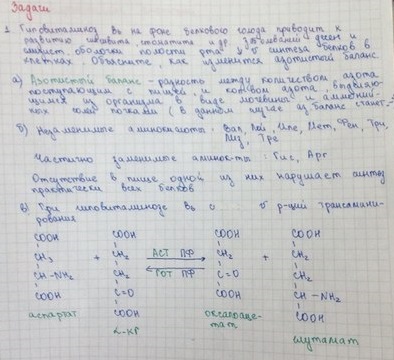 Задачи
1. Гиповитаминоз B6 на фоне белкового голода приводит к
развитию гингивита, стоматита и др. заболеваний десен и
слизист. оболочки полости рта ↓ V синтеза белков в
клетках. Объясните, как изменится азотистый баланс
а) Азотистый баланс - разность между количеством азота
поступающим с пищей и кол-вом азота, выделяю-
щимся из организма в виде мочевины и аммоний-
ных солей почками (в данном случае аз. баланс станет "-")
б) Незаменимые аминокислоты: Вал, Лей, Иле, Мет, Фен, Три,
Лиз, Тре
Частично заменимые аминок-ты: Гис, Арг
Отсутствие в пище одной из них нарушает синтез
практически всех белков
в) При гиповитаминозе B6 V р-ций трансамини-
рования
COOH COOH COOH COOH
CH2 + CH2 АСТ ПФ CH2 + CH2
CH-NH2 CH2 ПФ C=O CH2
COOH C=O COOH CH-NH2
аспартат COOH оксалоаце- COOH
α-КГ тат глутамат